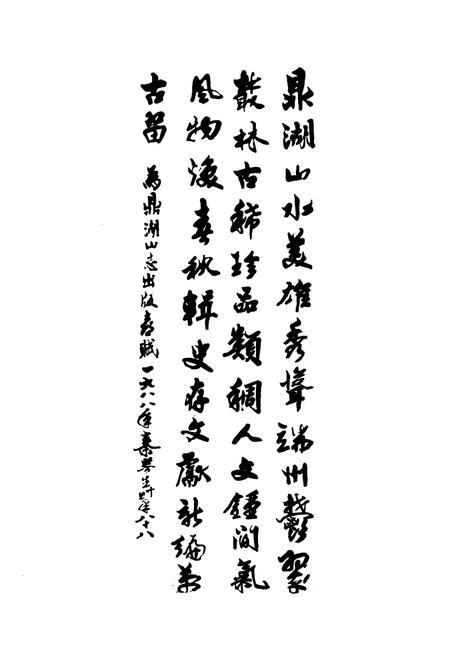 鼎湖山水美雄秀聳端州鬱翠
叢林古稀珍品類稠人文鍾間氣
風物煥春秋輯史存文獻新編萬
古留
為鼎湖山志出版喜賦一九八八年秦咢生時年八十八